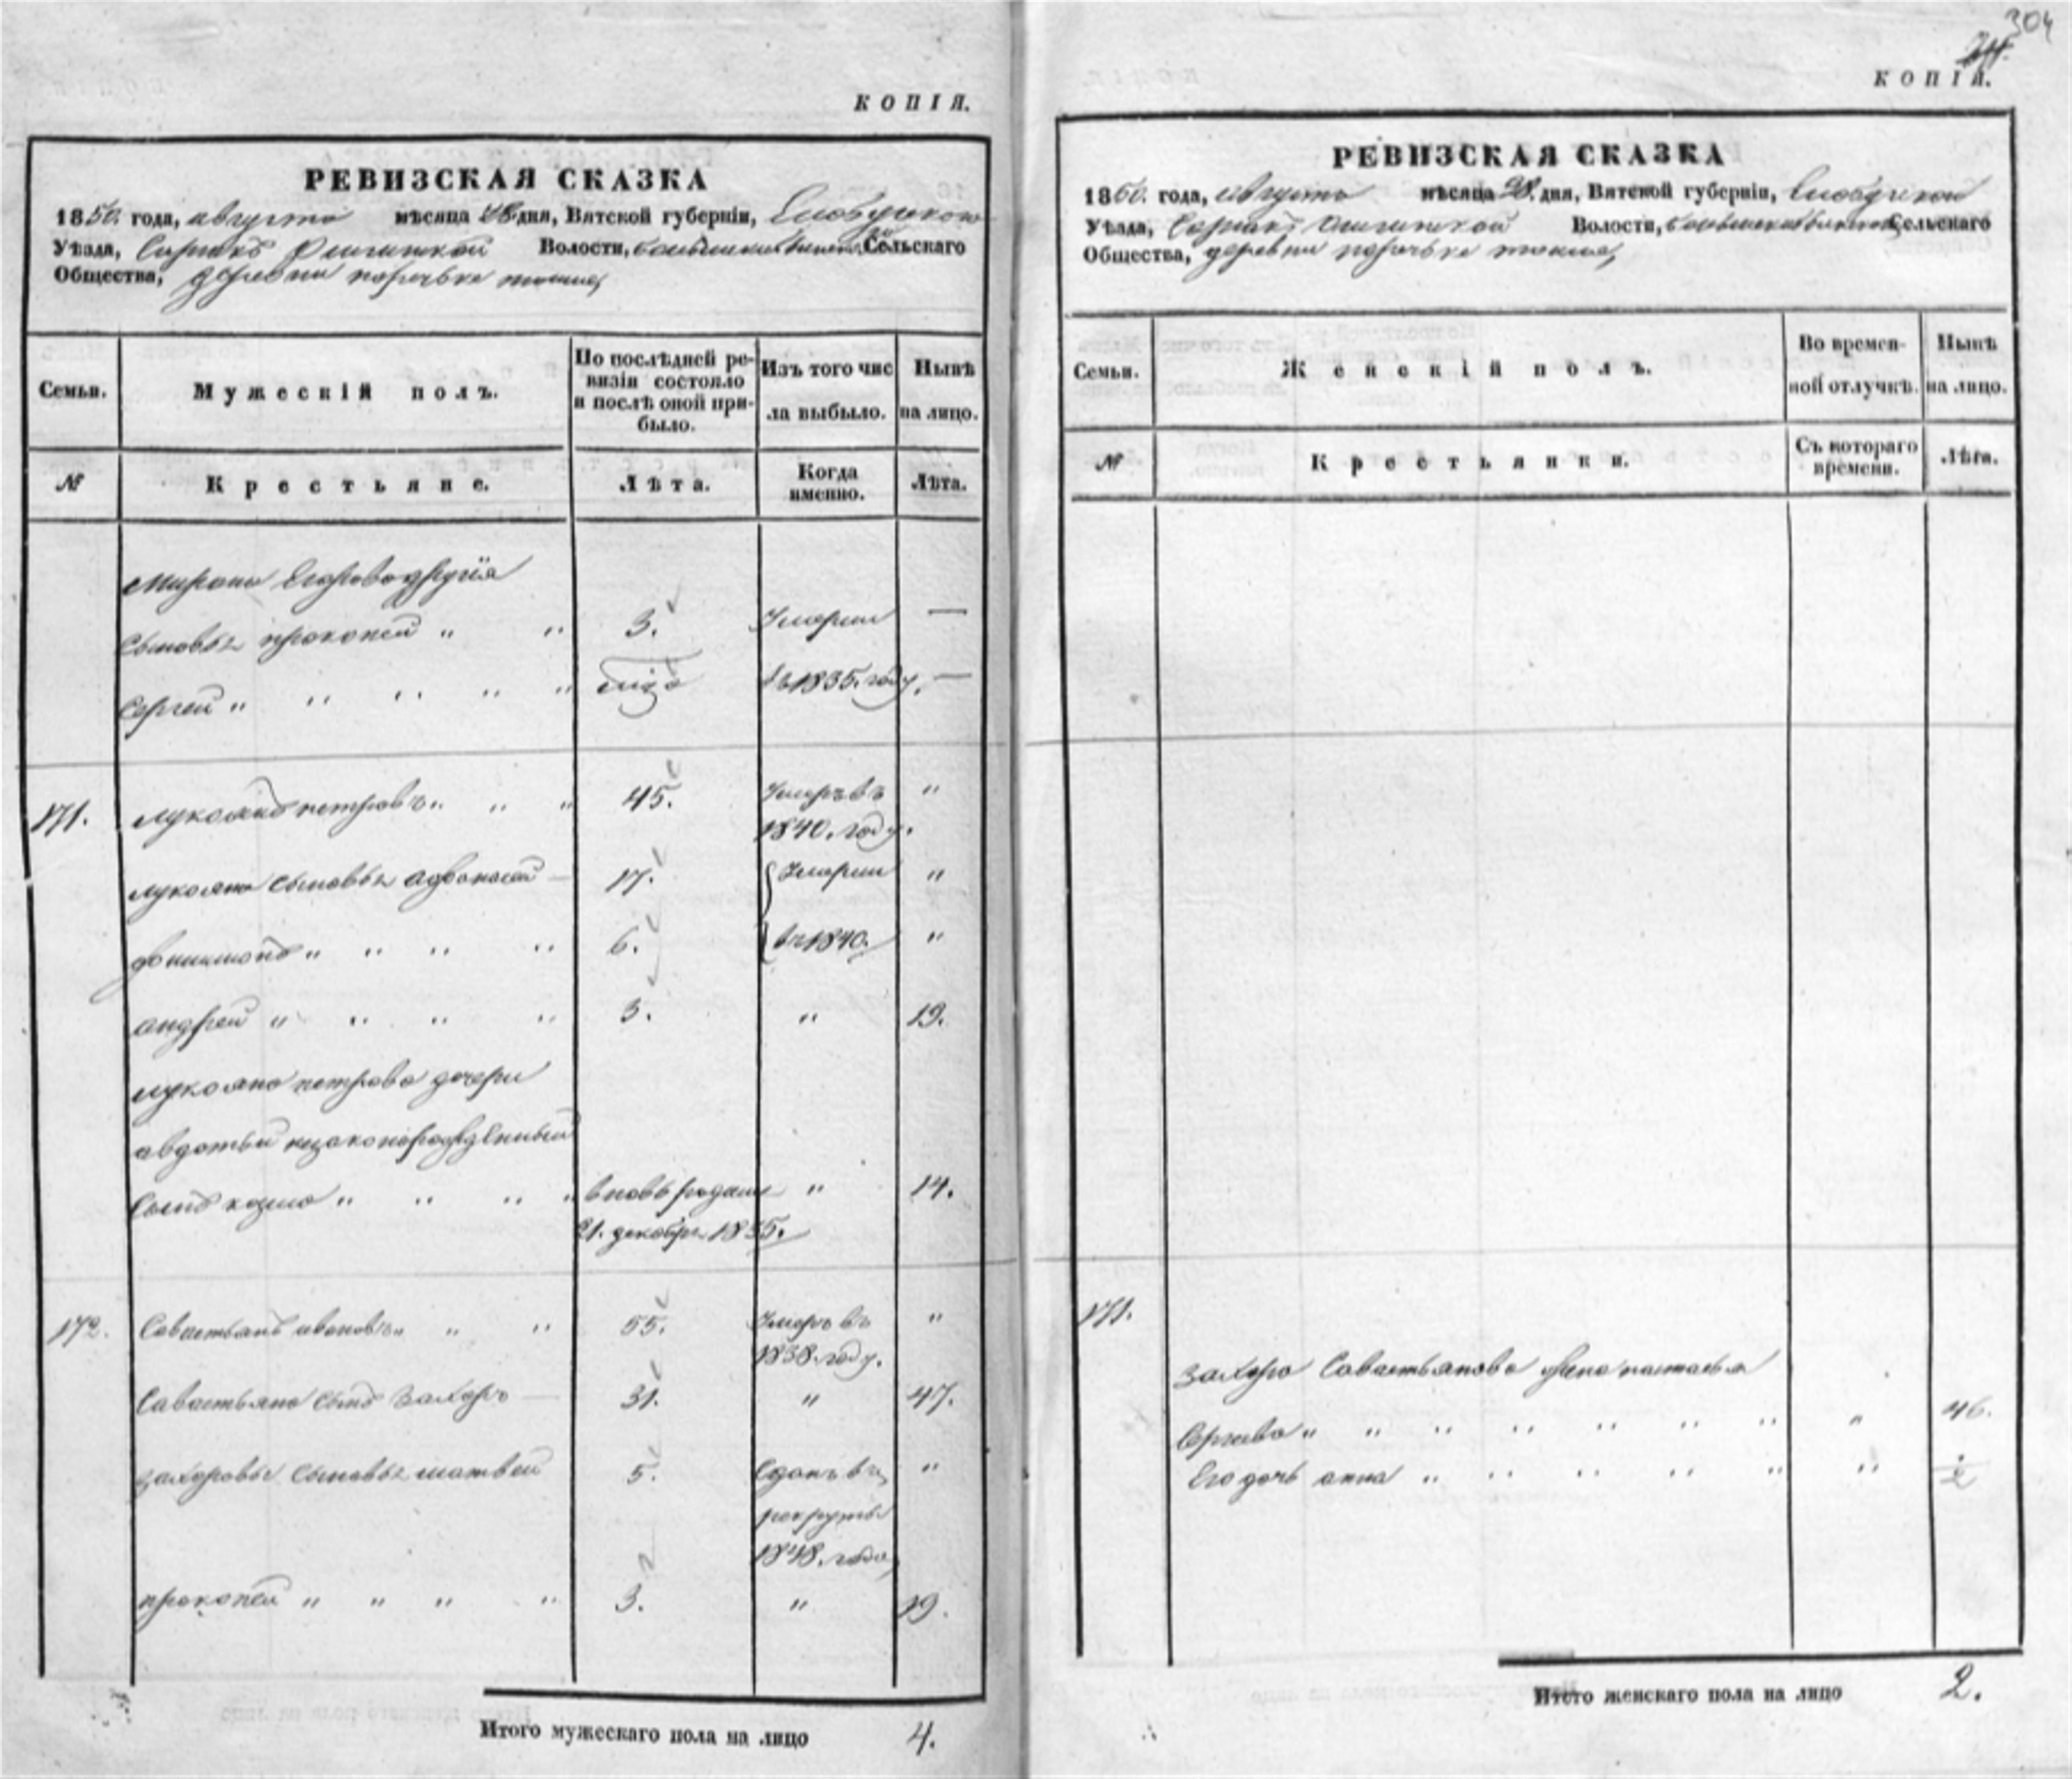 КОПІЯ.
РЕВИЗСКАЯ СКАЗКА
1850. года, августа мѣсяца 28. дня, Вятской губерніи, Слободского
Уѣзда, Волости, Сельскаго
Общества, деревни
Семьи.
Мужескій полъ.
По послѣдней ре-
визіи состояло
и послѣ оной при-
было.
Изъ того чис
ла выбыло.
Нынѣ
на лицо.
№
Крестьяне.
Лѣта.
Когда
именно.
Лѣта.
Мирона Егорова другія
Сыновья прокопей " " 3. Умерли —
Сергей " " " " " въ 1835. году. —
171. лукоянъ петровъ " " " 45. Умеръ въ "
1840. году.
лукояна сыновья афонасей — 17. Умерли "
филимонъ " " " " 6. въ 1840. "
андрей " " " " 3. " 19.
лукояна петрова дочери
авдотьи незаконорожденный
Сынъ козма " " " " вновь рожденъ " 14.
21. декабря 1835.
172. Савастьянъ ивановъ " " " 55. Умеръ въ "
1838. году.
Савастьяна сынъ Захаръ — 31. " 47.
захаровы сыновья матвей 5. Сданъ въ "
рекруты
1848. года,
прокопей " " " " 3. " 19.
Итого мужескаго пола на лицо 4.
304
КОПІЯ.
РЕВИЗСКАЯ СКАЗКА
1850. года, августа мѣсяца 28. дня, Вятской губерніи, Слободской
Уѣзда, Волости, Сельскаго
Общества, деревни
Семьи.
Женскій полъ.
Во времен-
ной отлучкѣ.
Нынѣ
на лицо.
№
Крестьянки.
Съ котораго
времени.
Лѣта.
171.
Захара Савастьянова жена настасья
Сергиева " " " " " " " " 46.
Его дочь анна " " " " " "
Итого женскаго пола на лицо 2.